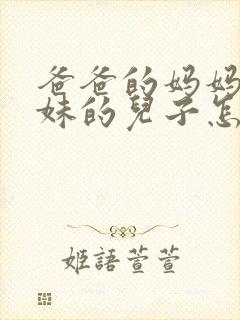 爸爸的妈妈
妹的兒子怎
姬語萱萱